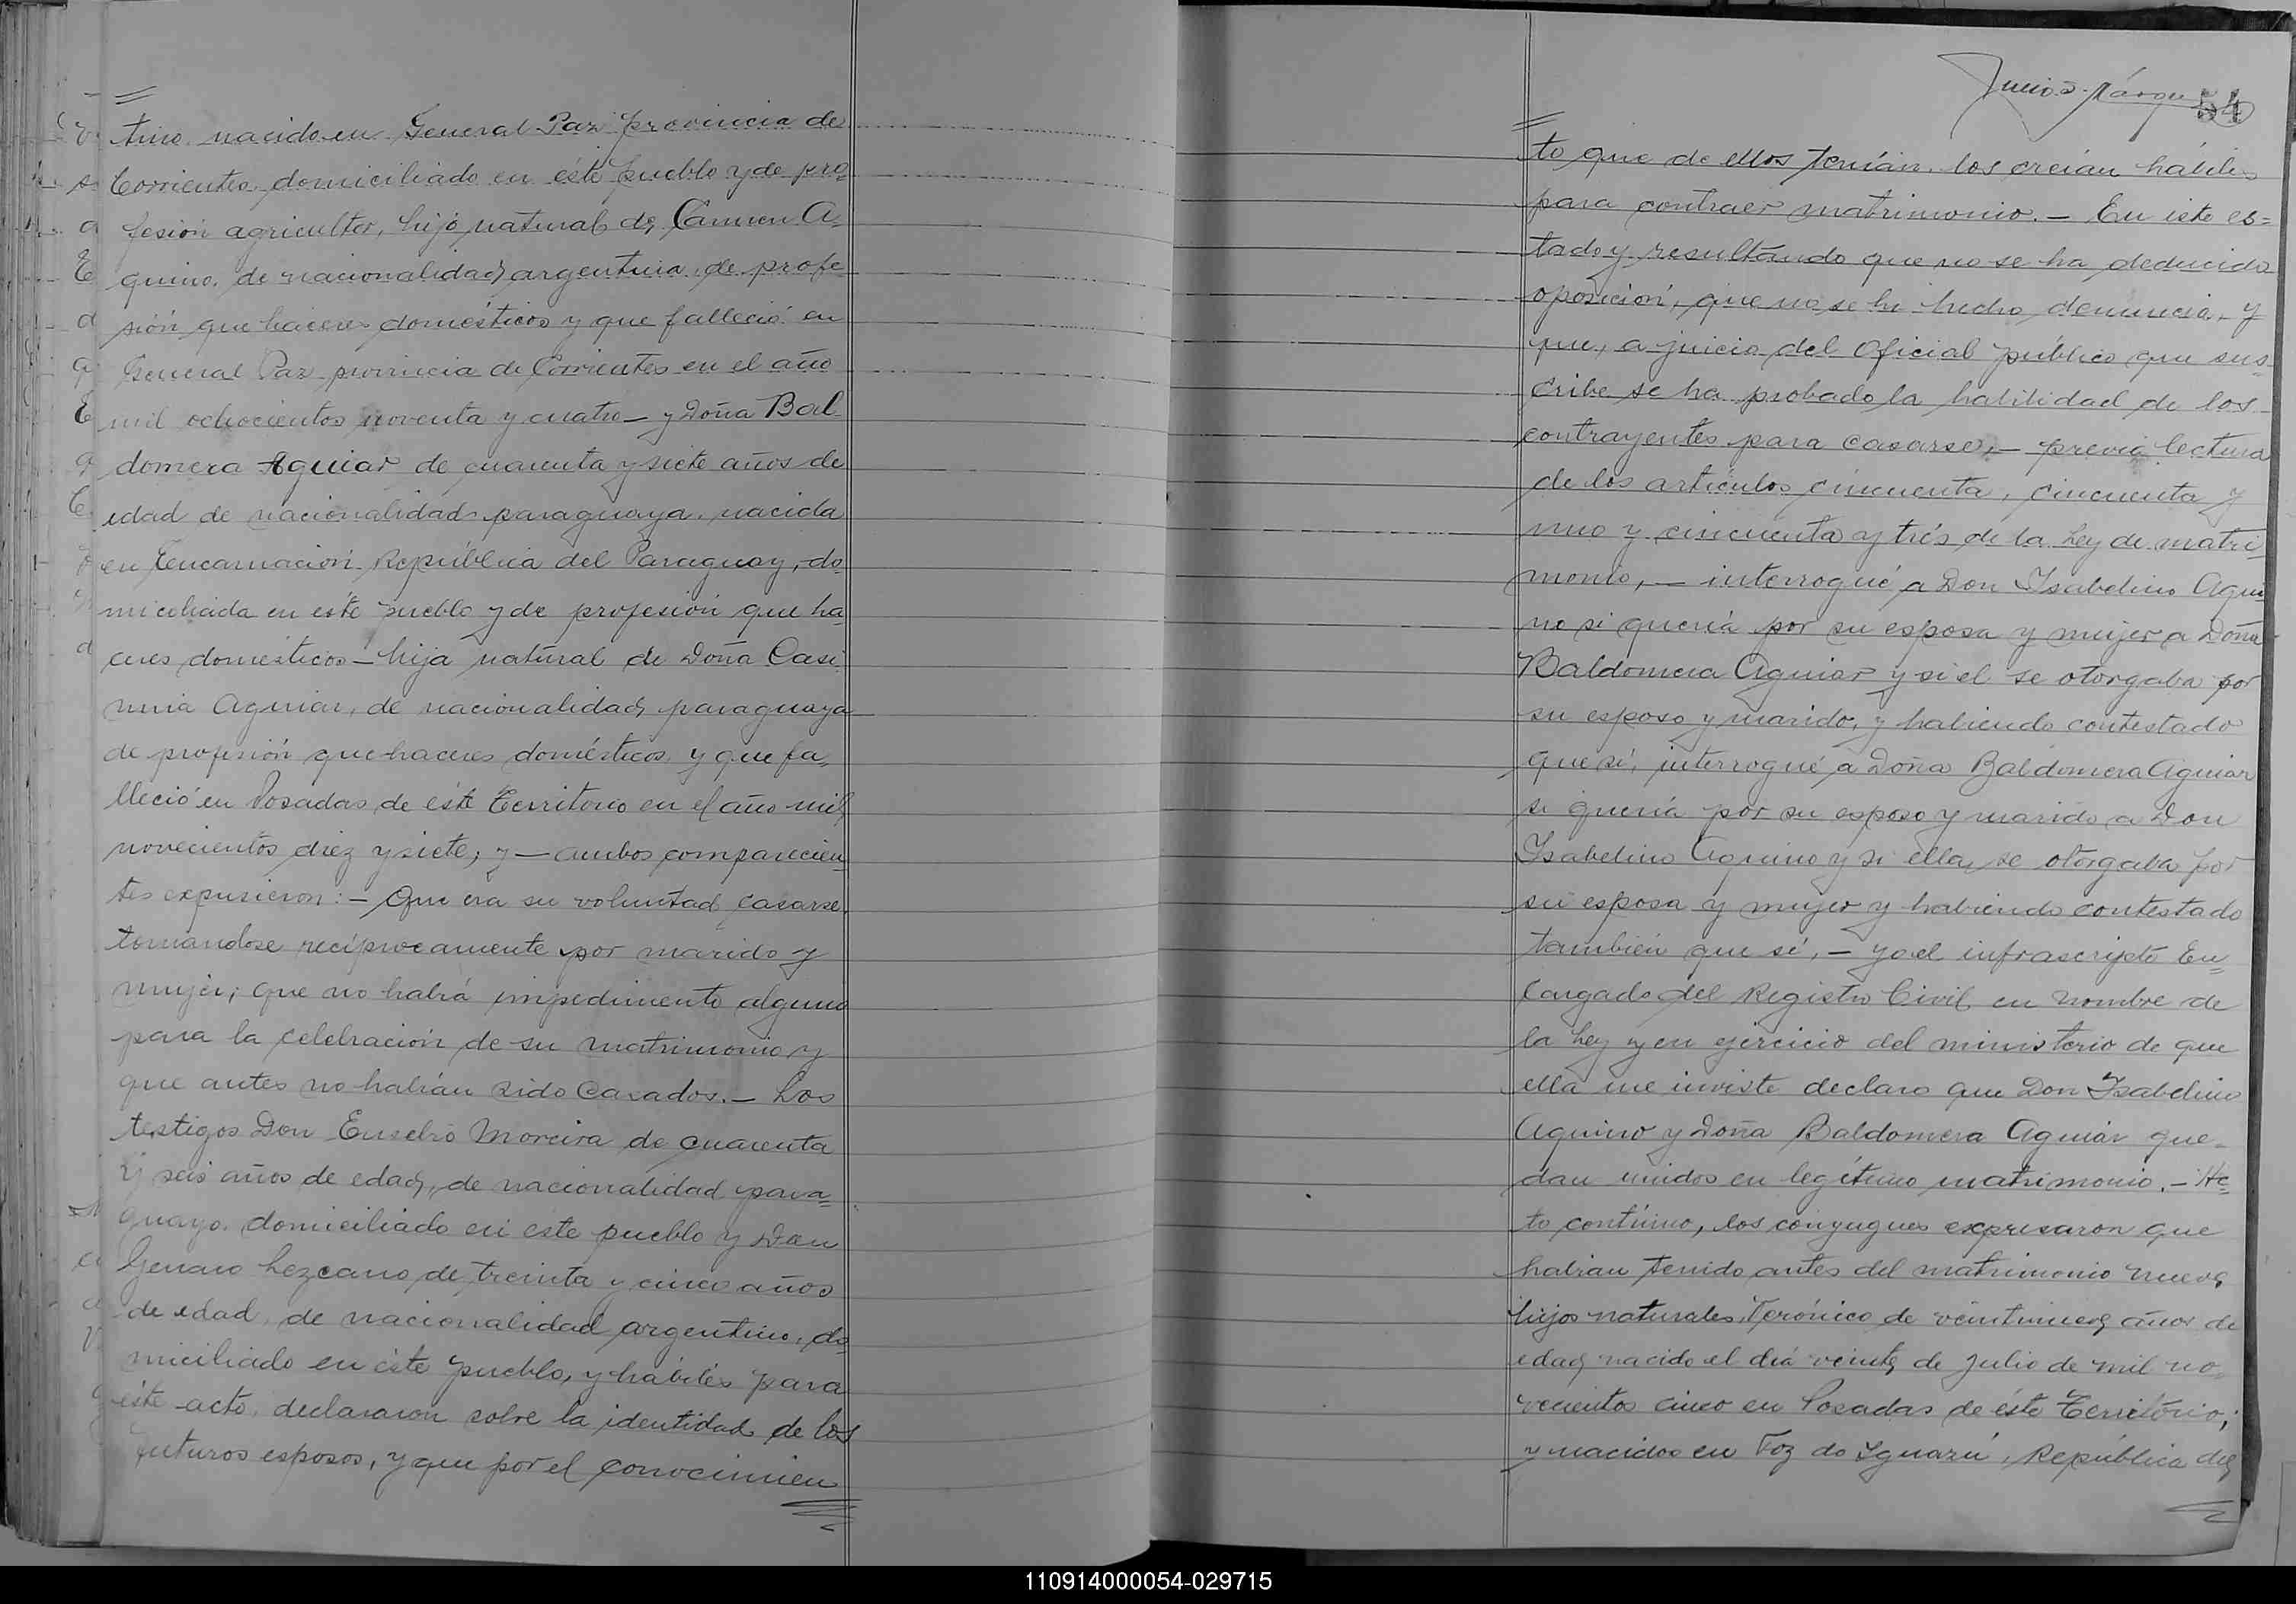 tino nacido en General Paz provincia de
Corrientes domiciliado en éste pueblo y de pro=
fesión agricultor, hijo natural de Cármen A=
quino. de nacionalidad argentina, de profe
sión quehaceres domésticos y que falleció en
General Paz provincia de Corrientes en el año
mil ochocientos noventa y cuatro — y Doña Bal
domera Aguiar de cuarenta y siete años de
edad de nacionalidad paraguaya. nacida
en Encarnación República del Paraguay, do
miciliada en éste pueblo y de profesión que ha
ceres domésticos — hija natural de Doña Casi
mira Aguiar, de nacionalidad paraguaya
de profesión quehaceres domésticos y que fa,
lleció en Posadas de éste Territorio en el año mil
novecientos diez y siete; y — ambos comparecien
tes expusieron: — Que era su voluntad casarse,
tomandose recíprocamente por marido y
mujer; que no había impedimento alguno
para la celebración de su matrimonio y
que antes no habían sido casados. — Los
testigos Don Eusebio Moreira de cuarenta
y seis años de edad, de nacionalidad para=
guayo. domiciliado en este pueblo y Don
Genaro Lezcano de treinta y cinco años
de edad, de nacionalidad argentino, do
miciliado en éste pueblo, y hábiles para
éste acto, declararon sobre la identidad de los
futuros esposos, y que por el conocimien
54
to que de ellos tenían. los creían hábiles
para contraer matrimonio. — En este es=
tado y resultando que no se ha deducido
oposición, que no se ha hecho denuncia, y
que, a juicio del Oficial público que sus
cribe se ha probado la habilidad de los
contrayentes para casarse, — previa lectura
de los artículos cincuenta, cincuenta y
uno y cincuenta y trés de la Ley de matri
monio, — interrogué a Don Isabelino Aqui
no si quería por su esposa y mujer a Doña
Baldomera Aguiar y si el se otorgaba por
su esposo y marido, y habiendo contestado
que sí, interrogué a Doña Baldomera Aguiar
si quería por su esposo y marido a Don
Isabelino Aquino y si ella se otorgaba por
su esposa y mujer y habiendo contestado
también que sí, — yo el infrascripto En=
cargado del Registro Civil en nombre de
la Ley y en ejercicio del ministerio de que
ella me inviste declaro que Don Isabelino
Aquino y Doña Baldomera Aguiar que=
dan unidos en legítimo matrimonio. — Ac=
to contínuo, los conyugues expresaron que
habían tenido antes del matrimonio nueve
hijos naturales, de veintinueve años de
edad, nacido el día veinte de Julio de mil no=
vecientos cinco en Posadas de éste Territorio;
y nacidos en Foz do Iguazú, República del
110914000054-029715